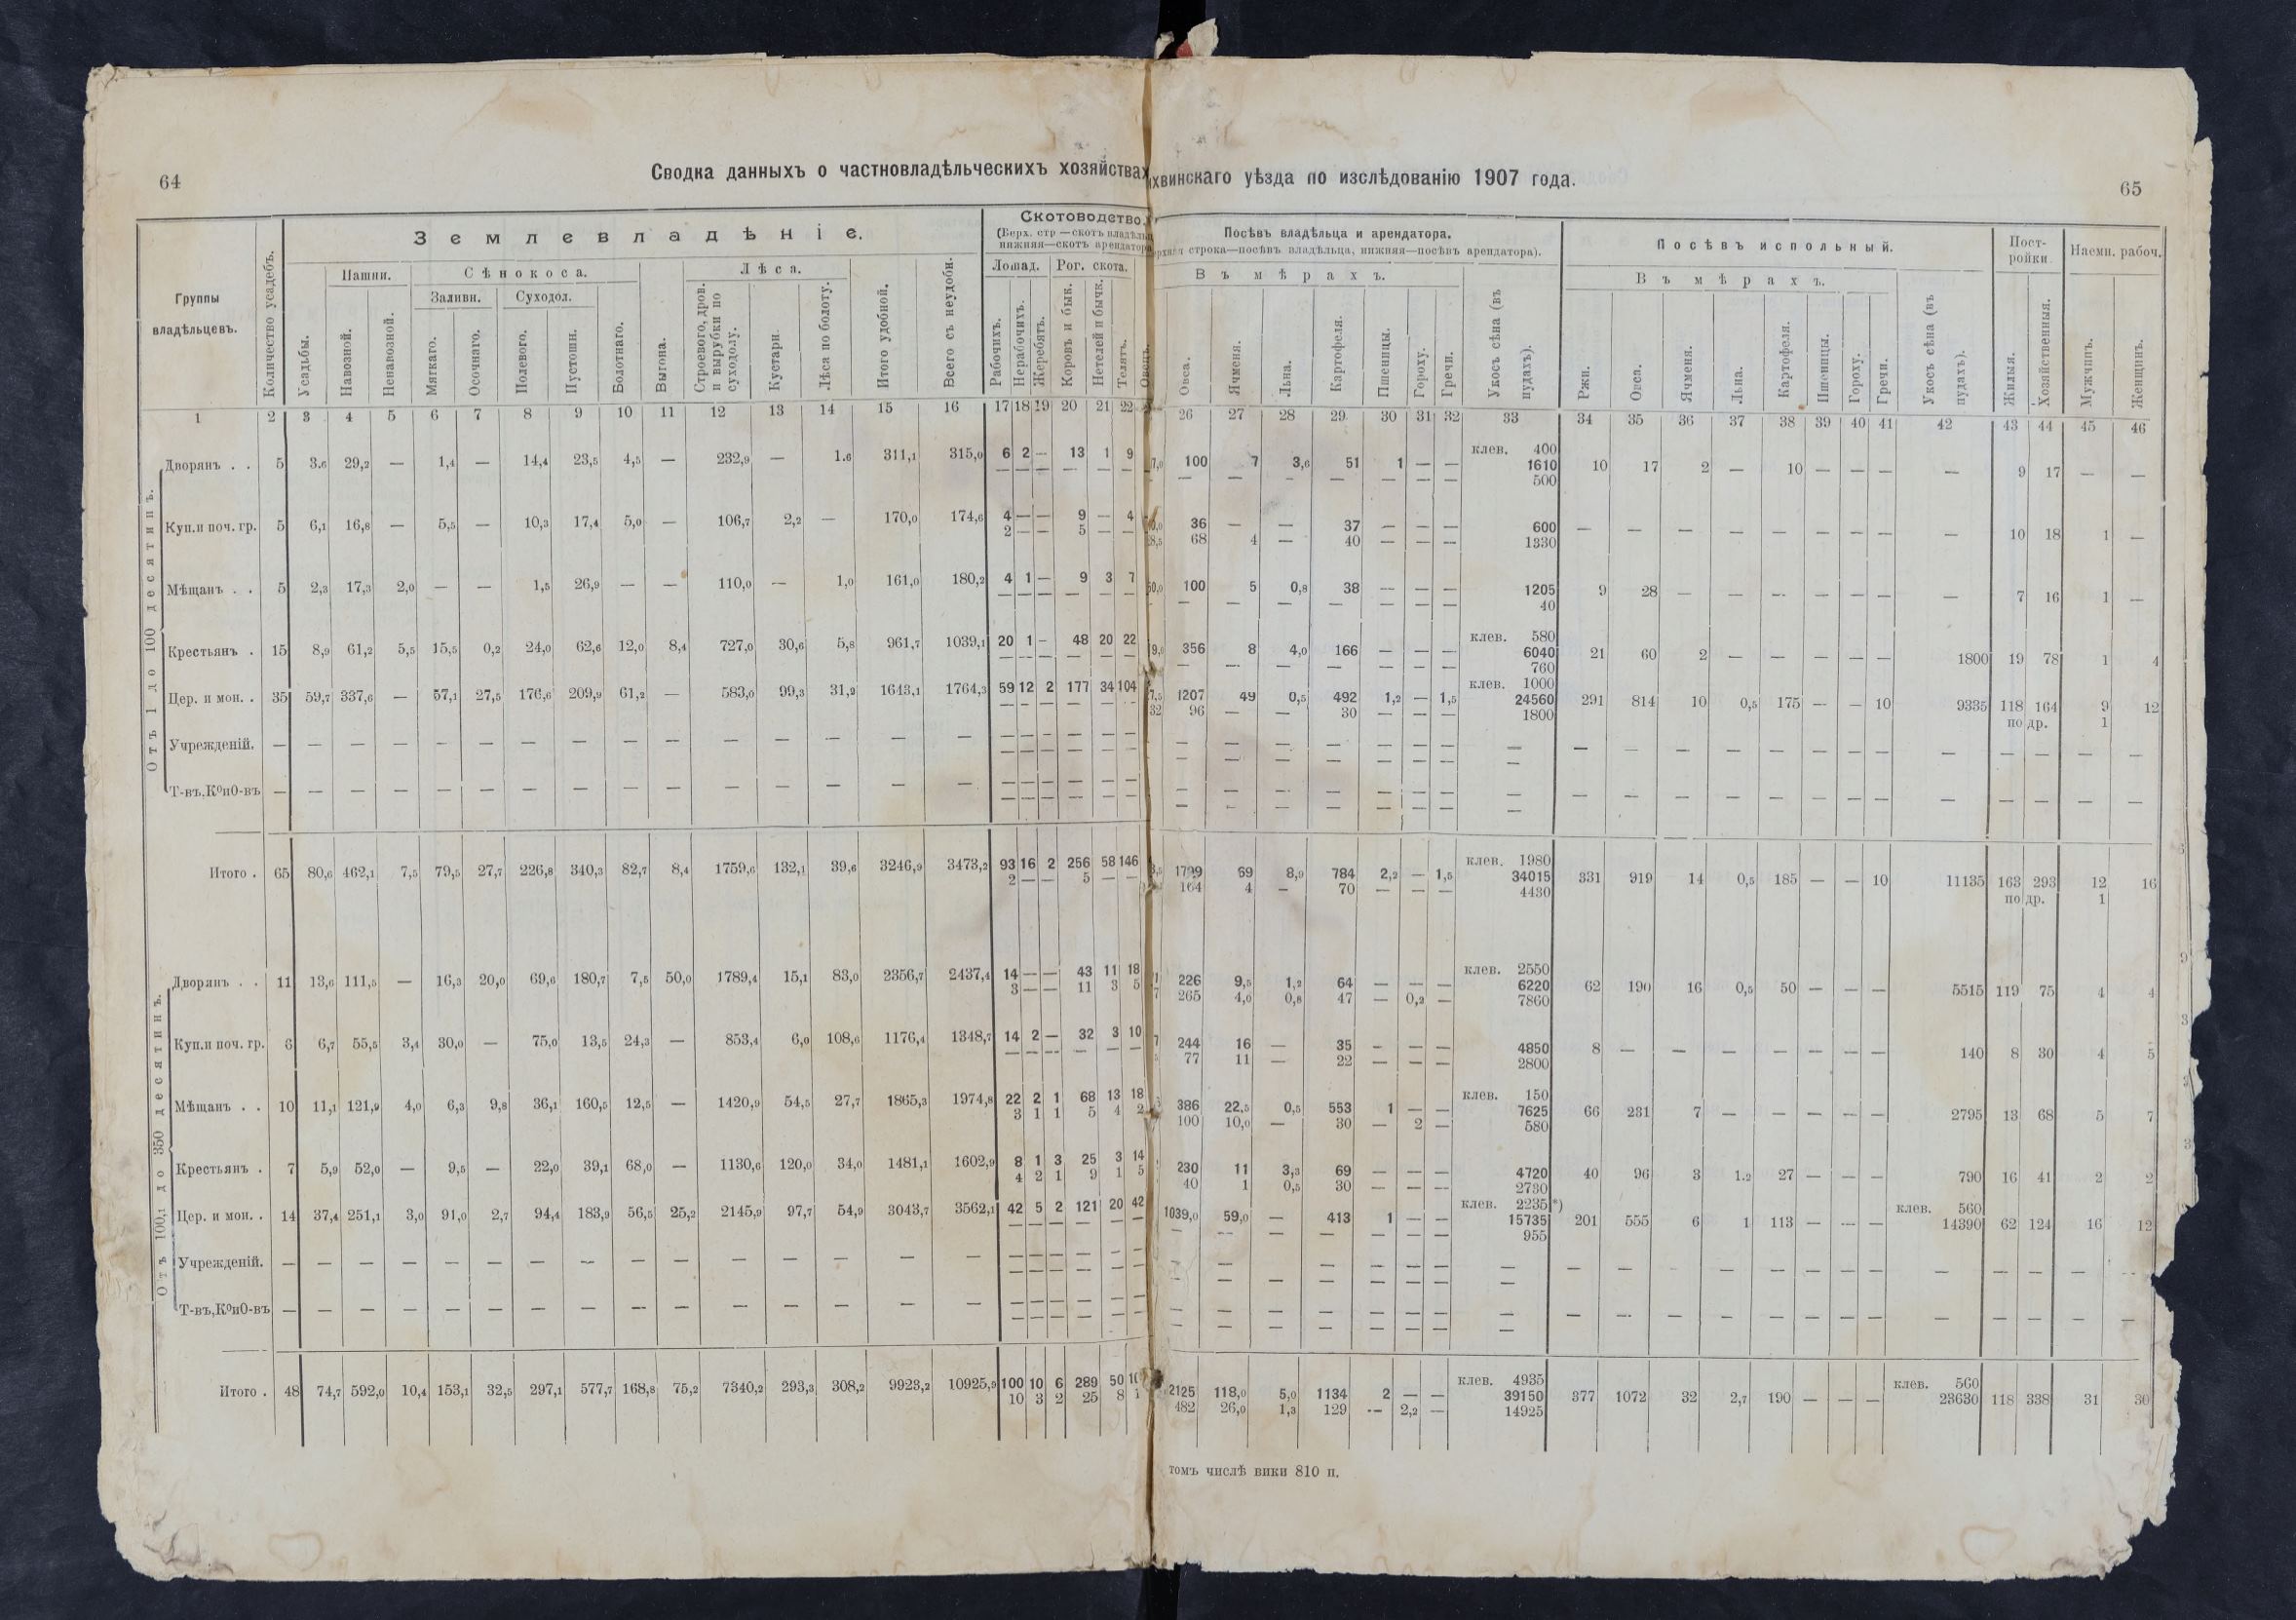 64
Сводка данныхъ о частновладѣльческихъ хозяйствах хвинскаго уѣзда по изслѣдованію 1907 года.
65
Группы владѣльцевъ.
Количество усадебъ.
Землевладѣніе.
Усадьбы.
Пашни.
Навозной.
Ненавозной.
Сѣнокоса.
Заливн.
Мягкаго.
Осочнаго.
Суходол.
Полевого.
Пустошн.
Болотнаго.
Выгона.
Лѣса.
Строевого, дров. и вырубки по суходолу.
Кустарн.
Лѣса по болоту.
Итого удобной.
Всего съ неудобн.
Скотоводство.
(Верх. стр —скотъ владѣльц
нижняя—скотъ арендатор
Лошад.
Рабочихъ.
Нерабочихъ.
Жеребятъ.
Рог. скота.
Коровъ и бык.
Нетелей и бычк.
Телятъ.
Овецъ.
Посѣвъ владѣльца и арендатора.
строка—посѣвъ владѣльца, нижняя—посѣвъ арендатора).
Въ мѣрахъ.
Овса.
Ячменя.
Льна.
Картофеля.
Пшеницы.
Гороху.
Гречи.
Укосъ сѣна (въ пудахъ).
Посѣвъ испольный.
Въ мѣрахъ.
Ржи.
Овса.
Ячменя.
Льна.
Картофеля.
Пшеницы.
Гороху.
Гречи.
Укосъ сѣна (въ пудахъ).
Пост-
ройки
Жилыя.
Хозяйственныя.
Наемн. рабоч.
Мужчинъ.
Женщинъ.
1 2 3 4 5 6 7 8 9 10 11 12 13 14 15 16 17 18 19 20 21 22 26 27 28 29 30 31 32 33 34 35 36 37 38 39 40 41 42 43 44 45 46
Отъ 1 до 100 десятинъ.
клев. 400
Дворянъ . . 5 3.6 29,2 — 1,4 — 14,4 23,5 4,5 — 232,9 — 1.6 311,1 315,0 6 2 — 13 1 9 100 7 3,6 51 1 — — 1610 10 17 2 — 10 — — — — 9 17 — —
— — — — — — — — — — — — — 500
Куп.и поч. гр. 5 6,1 16,8 — 5,5 — 10,3 17,4 5,0 — 106,7 2,2 — 170,0 174,6 4 — — 9 — 4 36 — — 37 — — — 600 — — — — — — — — — 10 18 1 —
2 — — 5 — — 68 4 — 40 — — — 1330
Мѣщанъ . . 5 2,3 17,3 2,0 — — 1,5 26,9 — — 110,0 — 1,0 161,0 180,2 4 1 — 9 3 7 100 5 0,8 38 — — — 1205 9 28 — — — — — — — 7 16 1 —
— — — — — — — — — — — — — 40
клев. 580
Крестьянъ . 15 8,9 61,2 5,5 15,5 0,2 24,0 62,6 12,0 8,4 727,0 30,6 5,8 961,7 1039,1 20 1 — 48 20 22 356 8 4,0 166 — — — 6040 21 60 2 — — — — — 1800 19 78 1 4
— — — — — — — — — — — — — 760
клев. 1000
Цер. и мон. . 35 59,7 337,6 — 57,1 27,5 176,6 209,9 61,2 — 583,0 99,3 31,2 1643,1 1764,3 59 12 2 177 34 104 1207 49 0,5 492 1,2 — 1,5 24560 291 814 10 0,5 175 — — 10 9335 118 164 9 12
— — — — — — 32 96 — — 30 — — — 1800 по др. 1
Учрежденій. — — — — — — — — — — — — — — — — — — — — — — — — — — — — — — — — — — — — — — — — — —
— — — — — — — — — — — — — —
Т-въ,КоиО-въ — — — — — — — — — — — — — — — — — — — — — — — — — — — — — — — — — — — — — — — — — —
— — — — — — — — — — — — — —
клев. 1980
Итого . 65 80,6 462,1 7,5 79,5 27,7 226,8 340,3 82,7 8,4 1759,6 132,1 39,6 3246,9 3473,2 93 16 2 256 58 146 1799 69 8,9 784 2,2 — 1,5 34015 331 919 14 0,5 185 — — 10 11135 163 293 12 16
2 — — 5 — — 164 4 — 70 — — — 4430 по др. 1
Отъ 100,1 до 350 десятинъ.
клев. 2550
Дворянъ . . 11 13,6 111,5 — 16,3 20,0 69,6 180,7 7,5 50,0 1789,4 15,1 83,0 2356,7 2437,4 14 — — 43 11 18 226 9,5 1,2 64 — — — 6220 62 190 16 0,5 50 — — — 5515 119 75 4 4
3 — — 11 3 5 265 4,0 0,8 47 — 0,2 — 7860
Куп.и поч. гр. 6 6,7 55,5 3,4 30,0 — 75,0 13,5 24,3 — 853,4 6,0 108,6 1176,4 1348,7 14 2 — 32 3 10 244 16 — 35 — — — 4850 8 — — — — — — — 140 8 30 4 5
— — — — — — 77 11 — 22 — — — 2800
клев. 150
Мѣщанъ . . 10 11,1 121,9 4,0 6,3 9,8 36,1 160,5 12,5 — 1420,9 54,5 27,7 1865,3 1974,8 22 2 1 68 13 18 386 22,5 0,5 553 1 — — 7625 66 231 7 — — — — — 2795 13 68 5 7
3 1 1 5 4 2 100 10,0 — 30 — 2 — 580
Крестьянъ . 7 5,9 52,0 — 9,5 — 22,0 39,1 68,0 — 1130,6 120,0 34,0 1481,1 1602,9 8 1 3 25 3 14 230 11 3,3 69 — — — 4720 40 96 3 1.2 27 — — — 790 16 41 2 2
4 2 1 9 1 5 40 1 0,5 30 — — — 2730
клев. 2235*) клев. 560
Цер. и мон. . 14 37,4 251,1 3,0 91,0 2,7 94,4 183,9 56,5 25,2 2145,9 97,7 54,9 3043,7 3562,1 42 5 2 121 20 42 1039,0 59,0 — 413 1 — — 15735 201 555 6 1 113 — — — 14390 62 124 16 12
— — — — — — — — — — — — — 955
Учрежденій. — — — — — — — — — — — — — — — — — — — — — — — — — — — — — — — — — — — — — — — — — —
— — — — — — — — — — — — — —
Т-въ,КоиО-въ — — — — — — — — — — — — — — — — — — — — — — — — — — — — — — — — — — — — — — — — — —
— — — — — — — — — — — — — —
клев. 4935 клев. 560
Итого . 48 74,7 592,0 10,4 153,1 32,5 297,1 577,7 168,8 75,2 7340,2 293,3 308,2 9923,2 10925,9 100 10 6 289 50 2125 118,0 5,0 1134 2 — — 39150 377 1072 32 2,7 190 — — — 23630 118 338 31 30
10 3 2 25 8 482 26,0 1,3 129 — 2,2 — 14925
томъ числѣ вики 810 п.